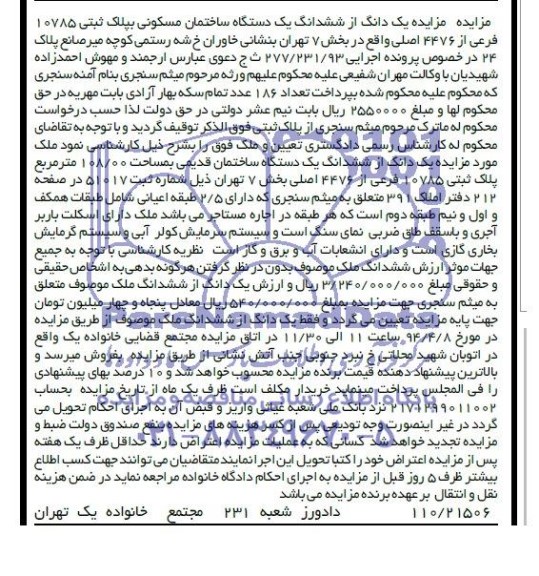 مزایده   مزایده یک دانگ از ششدانگ یک دستگاه ساختمان مسکونی بپلاک ثبتی ۱۰۷۸۵
فرعی از ۴۴۷۶ اصلی واقع در بخش ۷ تهران بنشانی خاوران خ شه رستمی کوچه میرصانع پلاک
۲۴ در خصوص پرونده اجرایی ۲۷۷/۲۳۱/۹۳ ث ج دعوی عبارس ارجمند و مهوش احمدزاده
شهیدیان با وکالت مهران شفیعی علیه محکوم علیهم ورثه مرحوم میثم سنجری بنام آمنه سنجری
که محکوم علیه محکوم شده بپرداخت تعداد ۱۸۶ عدد تمام سکه بهار آزادی بابت مهریه در حق
محکوم لها و مبلغ ۲۵۵۰۰۰۰ ریال بابت نیم عشر دولتی در حق دولت لذا حسب درخواست
محکوم له ماترک مرحوم میثم سنجری از پلاک ثبتی فوق الذکر توقیف گردید و با توجه به تقاضای
محکوم له کارشناس رسمی دادگستری تعیین و ملک فوق را بشرح ذیل کارشناسی نمود ملک
مورد مزایده یک دانگ از ششدانگ یک دستگاه ساختمان قدیمی بمساحت ۱۰۸/۰۰ مترمربع
پلاک ثبتی ۱۰۷۸۵ فرعی از ۴۴۷۶ اصلی بخش ۷ تهران ذیل شماره ثبت ۵۱۰۱۷ در صفحه
۲۱۲ دفتر املاک ۳۹۱ متعلق به میثم سنجری که دارای ۲/۵ طبقه اعیانی شامل طبقات همکف
و اول و نیم طبقه دوم است که هر طبقه در اجاره مستاجر می باشد ملک دارای اسکلت باربر
آجری و باسقف طاق ضربی نمای سنگ است و سیستم سرمایش کولر آبی و سیستم گرمایش
بخاری گازی است و دارای انشعابات آب و برق و گاز است نظریه کارشناسی با توجه به جمیع
جهات موثر ارزش ششدانگ ملک موصوف بدون در نظر گرفتن هرگونه بدهی به اشخاص حقیقی
و حقوقی مبلغ ۳/۲۴۰/۰۰۰/۰۰۰ ریال و ارزش یک دانگ از ششدانگ ملک موصوف متعلق
به میثم سنجری جهت مزایده بمبلغ ۵۴۰/۰۰۰/۰۰۰ ریال معادل پنجاه و چهار میلیون تومان
جهت پایه مزایده تعیین می گردد و فقط یک دانگ از ششدانگ ملک موصوف از طریق مزایده
در مورخ ۹۴/۴/۸ ساعت ۱۱ الی ۱۱/۳۰ در اتاق مزایده مجتمع قضایی خانواده یک واقع
در اتوبان شهید محلاتی خ نبرد جنوبی جنب آتش نشانی از طریق مزایده بفروش میرسد و
بالاترین پیشنهاد دهنده قیمت برنده مزایده محسوب خواهد شد و ۱۰ درصد بهای پیشنهادی
را فی المجلس پرداخت مینماید خریدار مکلف است ظرف یک ماه از تاریخ مزایده بحساب
۲۱۷۱۲۹۹۰۱۱۰۰۲ نزد بانک ملی شعبه غیاثی واریز و قبض آن به اجرای احکام تحویل می
گردد در غیر اینصورت وجه تودیعی پس از کسر هزینه های مزایده بنفع صندوق دولت ضبط و
مزایده تجدید خواهد شد کسانی که به عملیات مزایده اعتراض دارند حداقل ظرف یک هفته
پس از مزایده اعتراض خود را کتبا تحویل این اجرا نمایند متقاضیان می توانند جهت کسب اطلاع
بیشتر ظرف ۵ روز قبل از مزایده به اجرای احکام دادگاه خانواده مراجعه نماید در ضمن هزینه
نقل و انتقال بر عهده برنده مزایده می باشد
۱۱۰/۲۱۵۰۶   دادورز شعبه ۲۳۱ مجتمع خانواده یک تهران